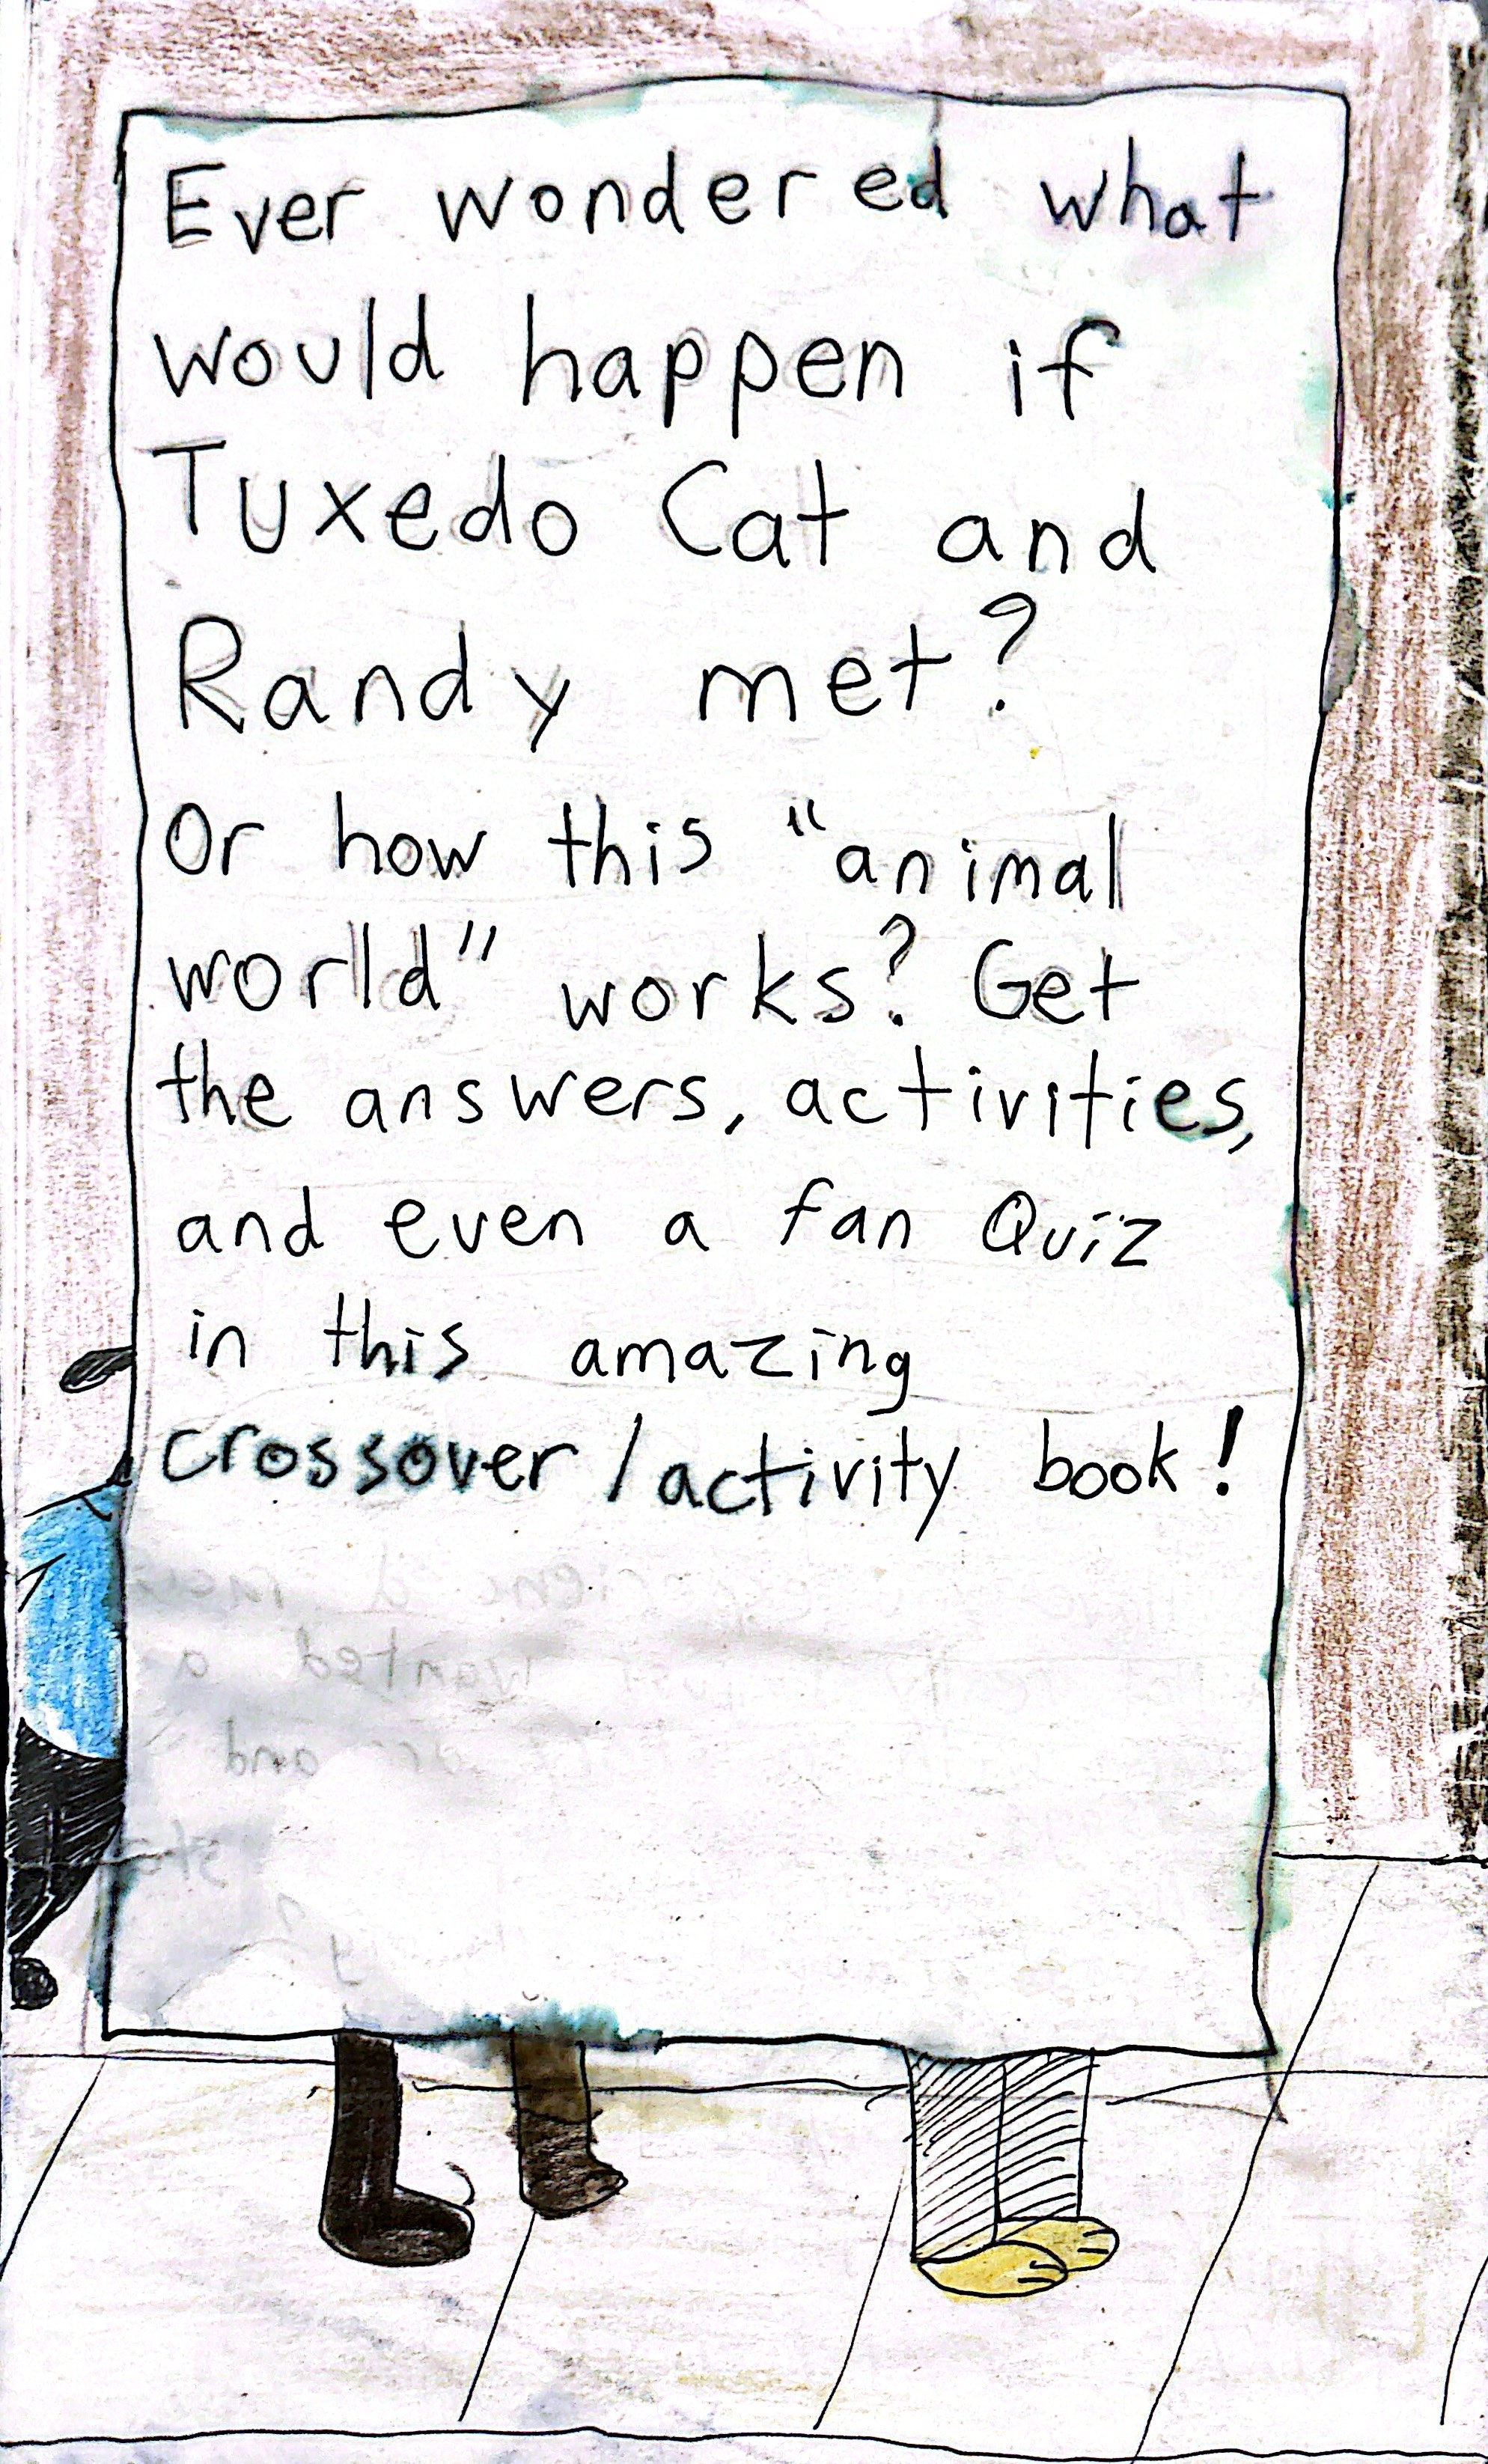 Ever wondered what
would happen if
Tuxedo Cat and
Randy met?
Or how this "animal
world" works? Get
the answers, activities,
and even a fan Quiz
in this amazing
crossover/activity book!
wanted a
and